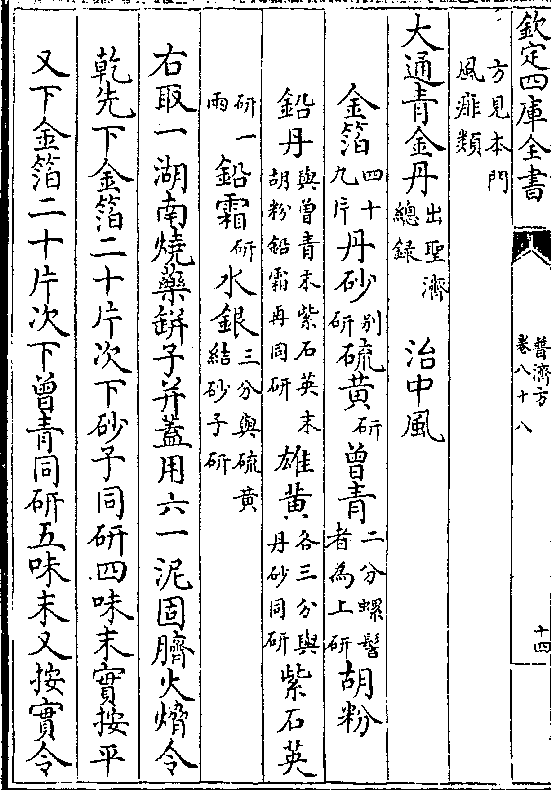 欽定四庫全書
普濟方
卷八十八
十四
方見本門
風痱類
大通青金丹 出聖濟總錄 治中風
金箔 四十九片 丹砂 别研 硫黄 研 曾青 二分螺髻者為上研 胡粉
鉛丹 與曾青末紫石英末胡粉鉛霜再同研 雄黄 各三分與丹砂同研 紫石英
研一兩 鉛霜 研 水銀 三分與硫黄結砂子研
右取一湖南燒藥缾子并蓋用六一泥固臍火熁令
乾先下金箔二十片次下砂子同研四味末實按平
又下金箔二十片次下曾青同研五味末又按實令